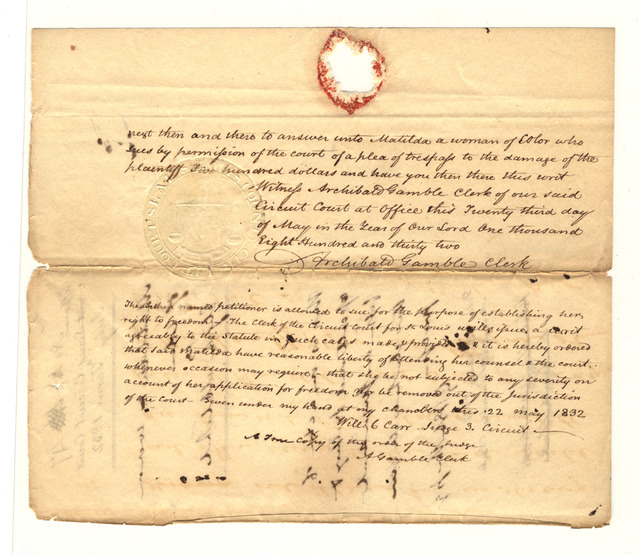 next then and there to answer unto Matilda a woman of Color who
sues by permission of the court of a plea of trespass to the damage of the
plaintiff Five hundred dollars and have you then there this writ
Witness Archibald Gamble Clerk of our said
Circuit Court at Office this Twenty third day
of May in the Year of Our Lord One thousand
Eight Hundred and thirty two
Archibald Gamble Clerk
The within named petitioner is allowed to sue for the purpose of establishing her
right to freedom. The Clerk of the Circuit Court for St Louis will issue a writ
agreeably to the Statute in such cases made & provided & it is hereby ordered
that said Matilda have reasonable liberty of attending her counsel & the court
whenever occasion may require that she be not subjected to any severity on
account of her application for freedom nor be removed out of the Jurisdiction
of the Court Given under my hand at my chambers this 22 May 1832
Will C Carr Judge 3. Circuit
A True Copy of the order of the Judge
A Gamble Clerk